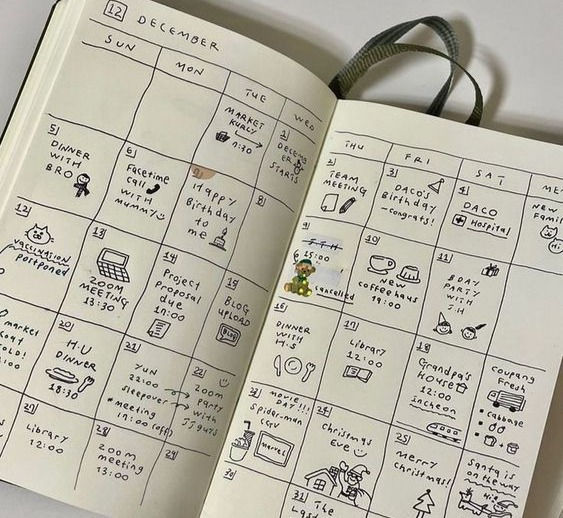 12 DECEMBER
SUN
MON
TUE
WED
MARKET
KURLY
7:30
1
DECEMB
ER
STARTS
5
DINNER
WITH
BRO
6
Facetime
call
WITH
MUMMY
7
Happy
Birthday
to
me
8
12
VACCINATION
postponed
13
ZOOM
MEETING
13:30
14
Project
Proposal
due
17:00
15
BLOG
UPLOAD
Blog
market
20
H.U
DINNER
18:30
21
Yun
22:00
sleepover
*meeting
17:00 (off)
22
ZOOM
PARTY
WITH
JJ guys
27
Library
12:00
28
Zoom
meeting
13:00
29
THU
FRI
SAT
ME
2
TEAM
MEETING
3
DACO's
Birthday
-congrats!
4
DACO
Hospital
NEW
Famil
Hi
9
J.T.H
15:00
cancelled
10
NEW
coffeehaus
19:00
11
BDAY
PARTY
WITH
J.H
16
DINNER
WITH
H.S
17
Library
12:00
18
Grandpa's
HOUSE
12:00
incheon
COUPANG
Fresh
cabbage
23
MOVIE
DAY!!!
Spider-man
CGV
MARVEL
24
Christmas
Eve
25
Merry
Christmas!
Santa is
on the way
30
31
The
Last